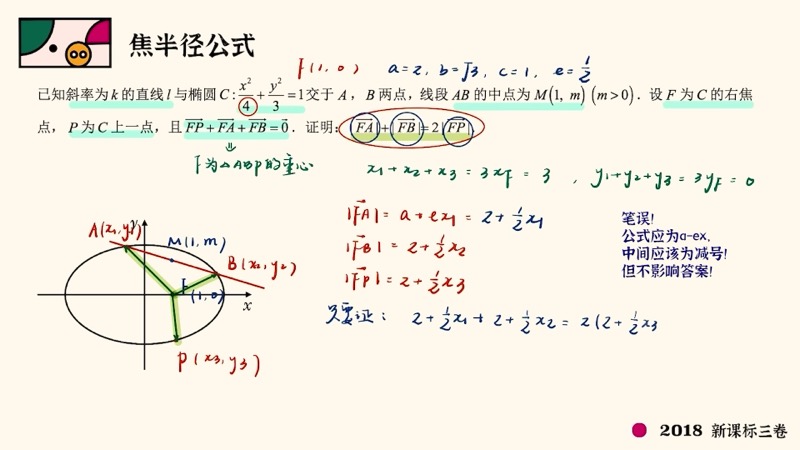 焦半径公式
F(1,0) a=2, b=√3, c=1, e=1/2
已知斜率为k的直线l与椭圆C:x²/4+y²/3=1交于A，B两点，线段AB的中点为M(1, m)(m>0)．设F为C的右焦
点，P为C上一点，且FP+FA+FB=0．证明：|FA|+|FB|=2|FP|．
⇓
F为△ABP的重心
x₁+x₂+x₃=3x_F=3 , y₁+y₂+y₃=3y_F=0
|FA|=a+ex₁=2+1/2x₁
|FB|=2+1/2x₂
|FP|=2+1/2x₃
只要证: 2+1/2x₁+2+1/2x₂=2(2+1/2x₃
笔误!
公式应为a-ex,
中间应该为减号!
但不影响答案!
y
A(x₁,y₁)
M(1,m)
B(x₂,y₂)
F
(1,0)
x
P(x₃,y₃)
2018 新课标三卷